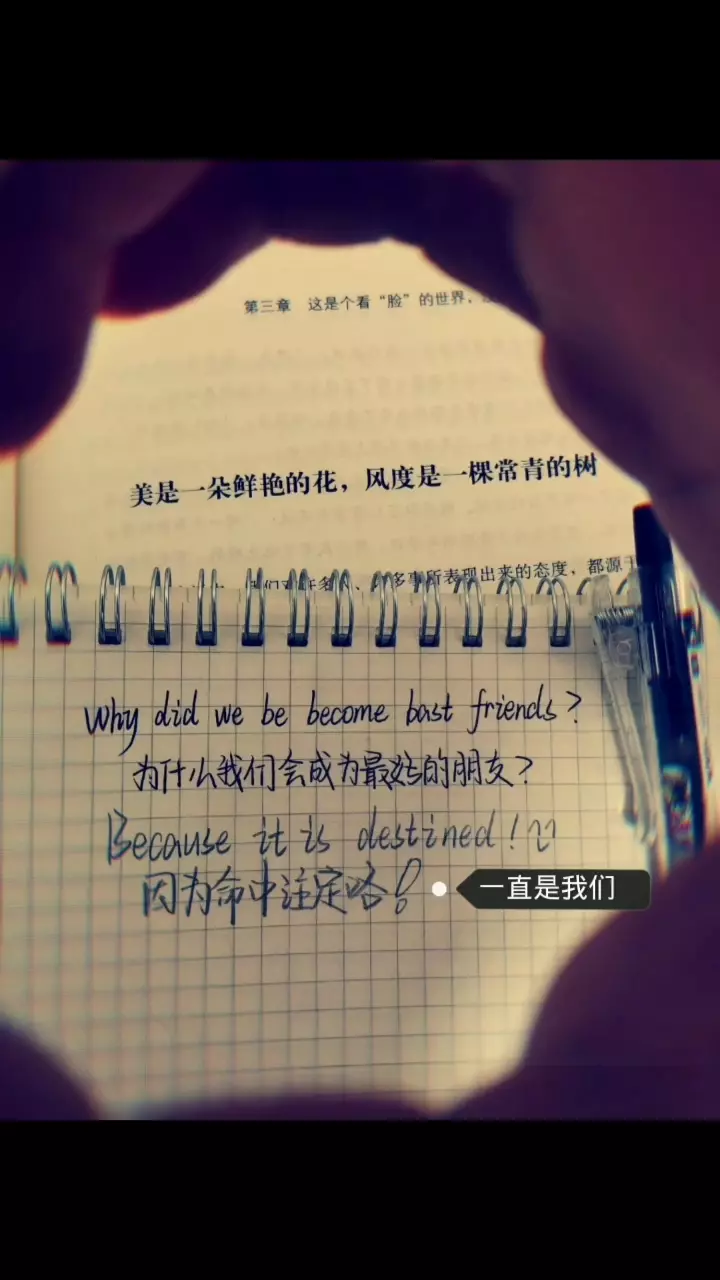 第三章 这是个看“脸”的世界，
美是一朵鲜艳的花，风度是一棵常青的树
多事所表现出来的态度，都源于
Why did we be become bast friends?
为什么我们会成为最好的朋友？
Because it is destined!
因为命中注定咯！
一直是我们